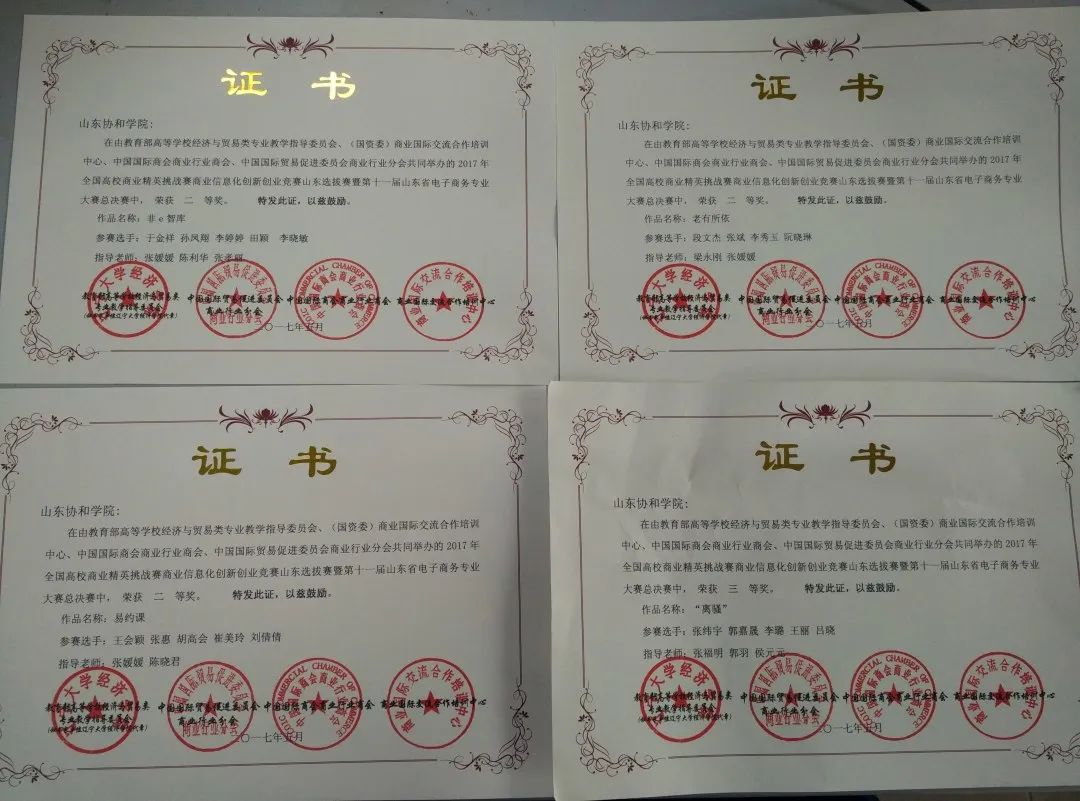 证 书
山东协和学院:
在由教育部高等学校经济与贸易类专业教学指导委员会、（国资委）商业国际交流合作培训
中心、中国国际商会商业行业商会、中国国际贸易促进委员会商业行业分会共同举办的 2017 年
全国高校商业精英挑战赛商业信息化创新创业竞赛山东选拔赛暨第十一届山东省电子商务专业
大赛总决赛中， 荣获 二 等奖。 特发此证，以兹鼓励。
作品名称：非 e 智库
参赛选手：于金祥 孙凤翔 李婷婷 田颖 李晓敏
指导老师：张媛媛 陈利华 张孝丽
教育部高等学校经济与贸易类 中国国际贸易促进委员会 中国国际商会商业行业商会 商业国际交流合作培训中心
专业教学指导委员会 商业行业分会
二〇一七年五月
证 书
山东协和学院:
在由教育部高等学校经济与贸易类专业教学指导委员会、（国资委）商业国际交流合作培训
中心、中国国际商会商业行业商会、中国国际贸易促进委员会商业行业分会共同举办的 2017 年
全国高校商业精英挑战赛商业信息化创新创业竞赛山东选拔赛暨第十一届山东省电子商务专业
大赛总决赛中， 荣获 二 等奖。 特发此证，以兹鼓励。
作品名称：老有所依
参赛选手：段文杰 张斌 李秀玉 阮晓琳
指导老师：梁永刚 张媛媛
教育部高等学校经济与贸易类 中国国际贸易促进委员会 中国国际商会商业行业商会 商业国际交流合作培训中心
专业教学指导委员会 商业行业分会
二〇一七年五月
证 书
山东协和学院:
在由教育部高等学校经济与贸易类专业教学指导委员会、（国资委）商业国际交流合作培训
中心、中国国际商会商业行业商会、中国国际贸易促进委员会商业行业分会共同举办的 2017 年
全国高校商业精英挑战赛商业信息化创新创业竞赛山东选拔赛暨第十一届山东省电子商务专业
大赛总决赛中， 荣获 二 等奖。 特发此证，以兹鼓励。
作品名称：易约课
参赛选手：王会颐 张惠 胡高会 崔美玲 刘倩倩
指导老师：张媛媛 陈晓君
教育部高等学校经济与贸易类 中国国际贸易促进委员会 中国国际商会商业行业商会 商业国际交流合作培训中心
专业教学指导委员会 商业行业分会
二〇一七年五月
证 书
山东协和学院:
在由教育部高等学校经济与贸易类专业教学指导委员会、（国资委）商业国际交流合作培训
中心、中国国际商会商业行业商会、中国国际贸易促进委员会商业行业分会共同举办的 2017 年
全国高校商业精英挑战赛商业信息化创新创业竞赛山东选拔赛暨第十一届山东省电子商务专业
大赛总决赛中， 荣获 三 等奖。 特发此证，以兹鼓励。
作品名称：“离骚”
参赛选手：张纬宇 郭嘉晟 李璐 王丽 吕晓
指导老师：张福明 郭羽 侯元元
教育部高等学校经济与贸易类 中国国际贸易促进委员会 中国国际商会商业行业商会 商业国际交流合作培训中心
专业教学指导委员会 商业行业分会
二〇一七年五月